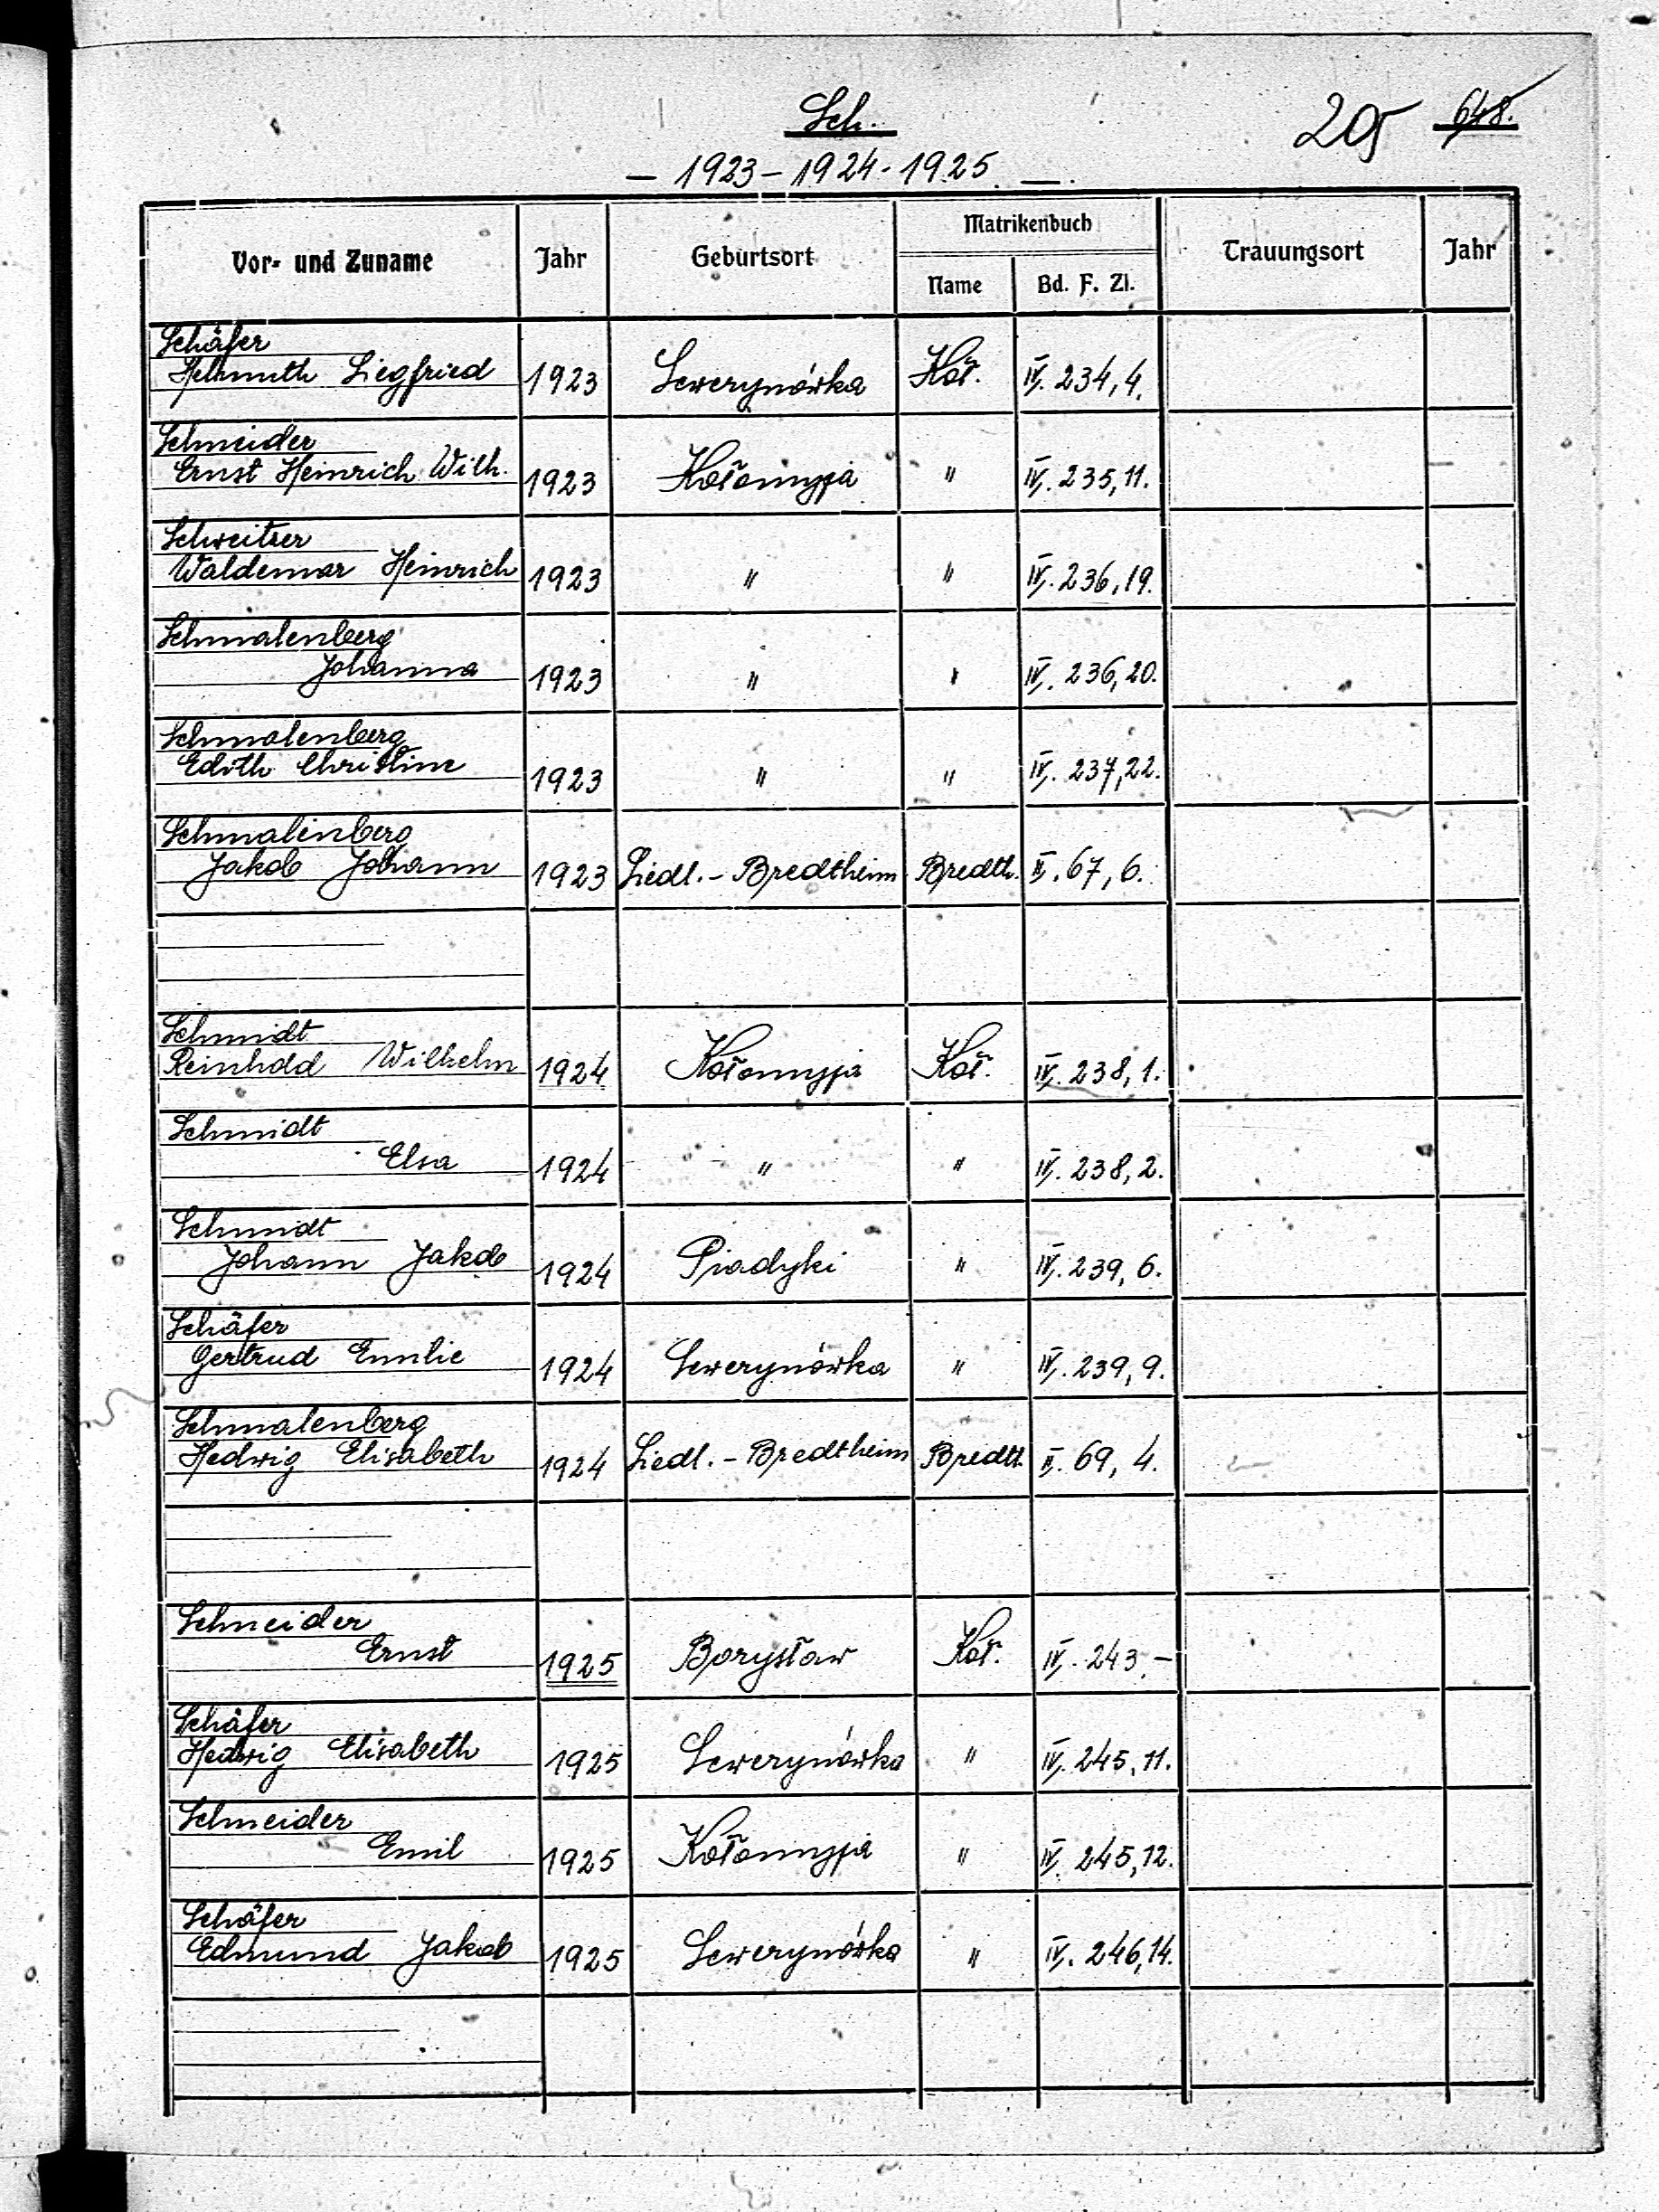 Sch.
205 648.
— 1923 – 1924 - 1925. —.
Vor- und Zuname Jahr Geburtsort Matrikenbuch Trauungsort Jahr
Name Bd. F. Zl.
Schäfer
Helmuth Siegfried 1923 Sewerynówka Koł. IV. 234, 4.
Schneider
Ernst Heinrich Wilh. 1923 Kołomyja " IV. 235, 11.
Schweitzer
Waldemar Heinrich 1923 " " IV. 236, 19.
Schmalenberg
Johanna 1923 " " IV. 236, 20.
Schmalenberg
Edith Christine 1923 " " IV. 237, 22.
Schmalenberg
Jakob Johann 1923 Siedl. - Bredtheim Bredth. II. 67, 6.
Schmidt
Reinhold Wilhelm 1924 Kołomyja Koł. IV. 238, 1.
Schmidt
Elsa 1924 " " IV. 238, 2.
Schmidt
Johann Jakob 1924 Piadyki " IV. 239, 6.
Schäfer
Gertrud Emilie 1924 Sewerynówka " IV. 239, 9.
Schmalenberg
Hedwig Elisabeth 1924 Siedl. - Bredtheim Bredth. II. 69, 4.
Schneider
Ernst 1925 Borysław Koł. IV. 243, –
Schäfer
Hedwig Elisabeth 1925 Sewerynówka " IV. 245, 11.
Schneider
Emil 1925 Kołomyja " IV. 245, 12.
Schäfer
Edmund Jakob 1925 Sewerynówka " IV. 246, 14.